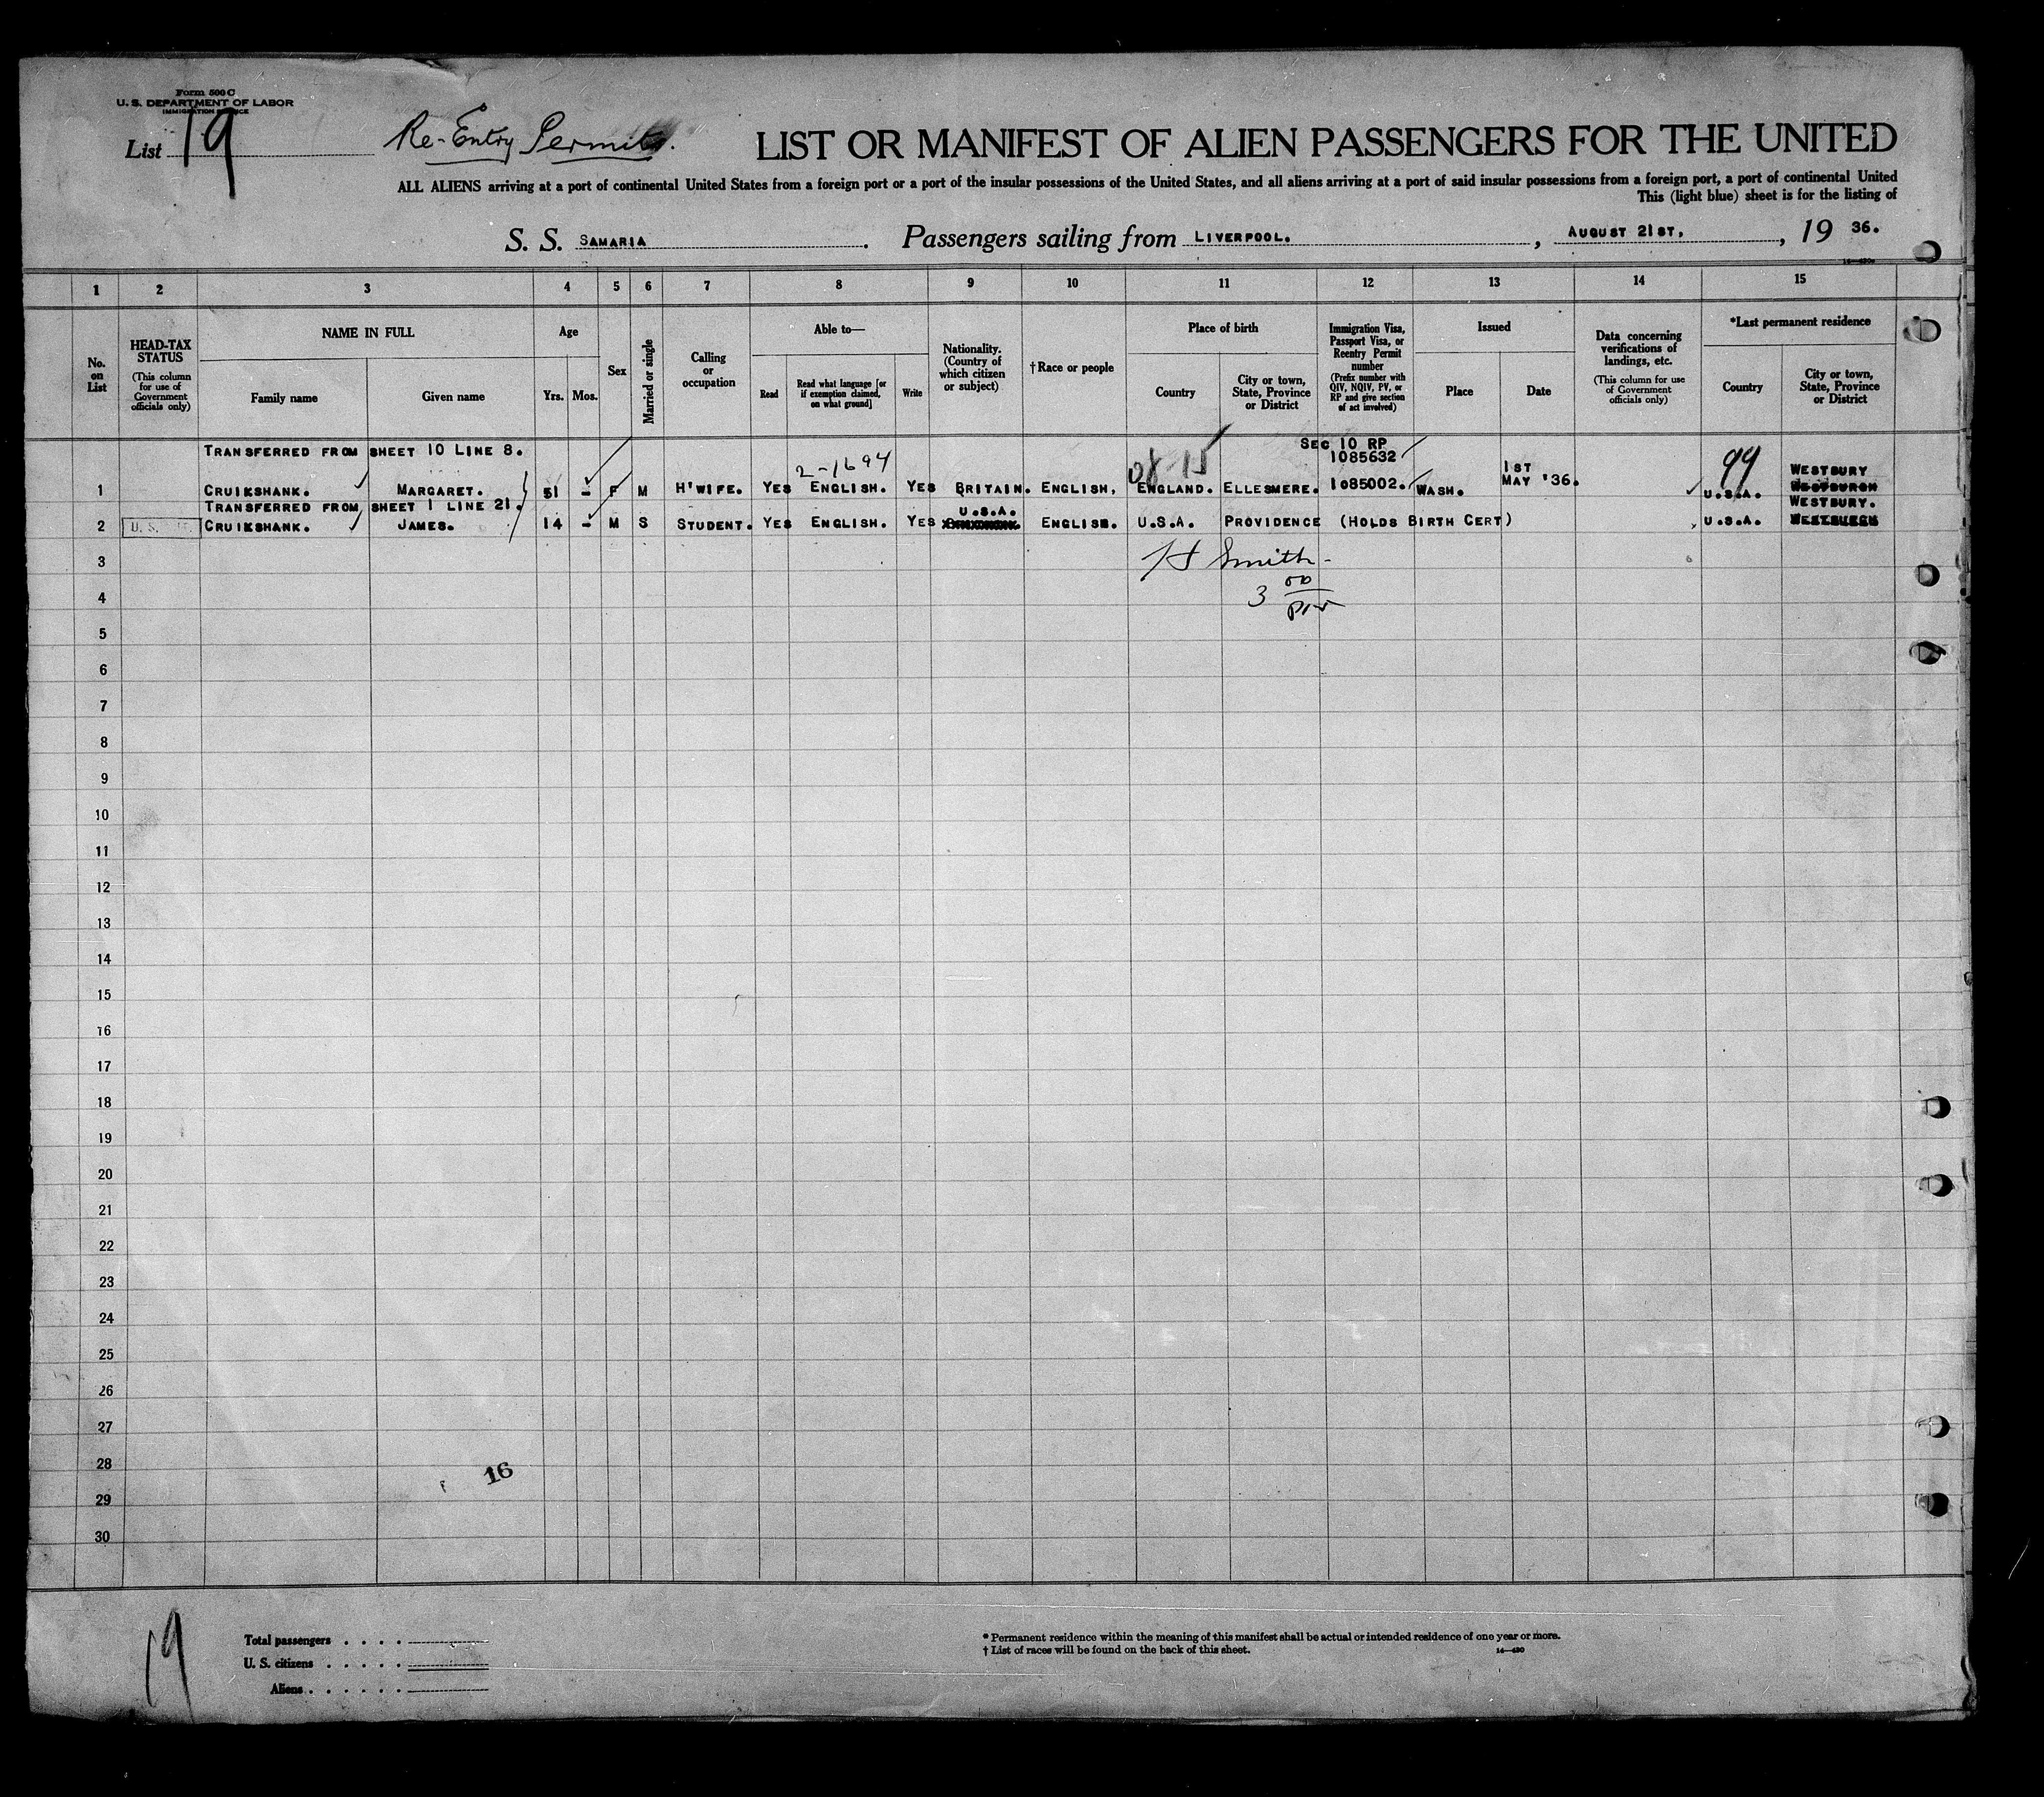 Form 500 C
U. S. DEPARTMENT OF LABOR
IMMIGRATION SERVICE
List 19
Re-Entry Permits.
LIST OR MANIFEST OF ALIEN PASSENGERS FOR THE UNITED
ALL ALIENS arriving at a port of continental United States from a foreign port or a port of the insular possessions of the United States, and all aliens arriving at a port of said insular possessions from a foreign port, a port of continental United
This (light blue) sheet is for the listing of
S. S. SAMARIA. Passengers sailing from LIVERPOOL. , AUGUST 21ST, , 19 36.
1 2 3 4 5 6 7 8 9 10 11 12 13 14 15
No. on List
HEAD-TAX STATUS
(This column for use of Government officials only)
NAME IN FULL
Family name
Given name
Age
Yrs. Mos.
Sex
Married or single
Calling or occupation
Able to—
Read
Read what language [or if exemption claimed, on what ground]
Write
Nationality. (Country of which citizen or subject)
†Race or people
Place of birth
Country
City or town, State, Province or District
Immigration Visa, Passport Visa, or Reentry Permit number
(Prefix number with QIV, NQIV, PV, or RP and give section of act involved)
Issued
Place
Date
Data concerning verifications of landings, etc.
(This column for use of Government officials only)
*Last permanent residence
Country
City or town, State, Province or District
TRANSFERRED FROM SHEET 10 LINE 8. SEC 10 RP
2-1694 08 15 1085632 1ST 99 WESTBURY
1 CRUIKSHANK. MARGARET. 51 - F M H'WIFE. YES ENGLISH. YES BRITAIN. ENGLISH. ENGLAND. ELLESMERE. 1085002. WASH. MAY '36. U.S.A. WESTBURGH
TRANSFERRED FROM SHEET 1 LINE 21. U.S.A. WESTBURY.
2 U. S. CRUIKSHANK. JAMES. 14 - M S STUDENT. YES ENGLISH. YES ENGLISH. U.S.A. PROVIDENCE (HOLDS BIRTH CERT) U.S.A. WESTBURGH
3 H Smith-
4 3 00
5
6
7
8
9
10
11
12
13
14
15
16
17
18
19
20
21
22
23
24
25
26
27
28
16
29
30
19
Total passengers . . . .
U. S. citizens . . . . .
Aliens . . . . . .
* Permanent residence within the meaning of this manifest shall be actual or intended residence of one year or more.
† List of races will be found on the back of this sheet.
14—430